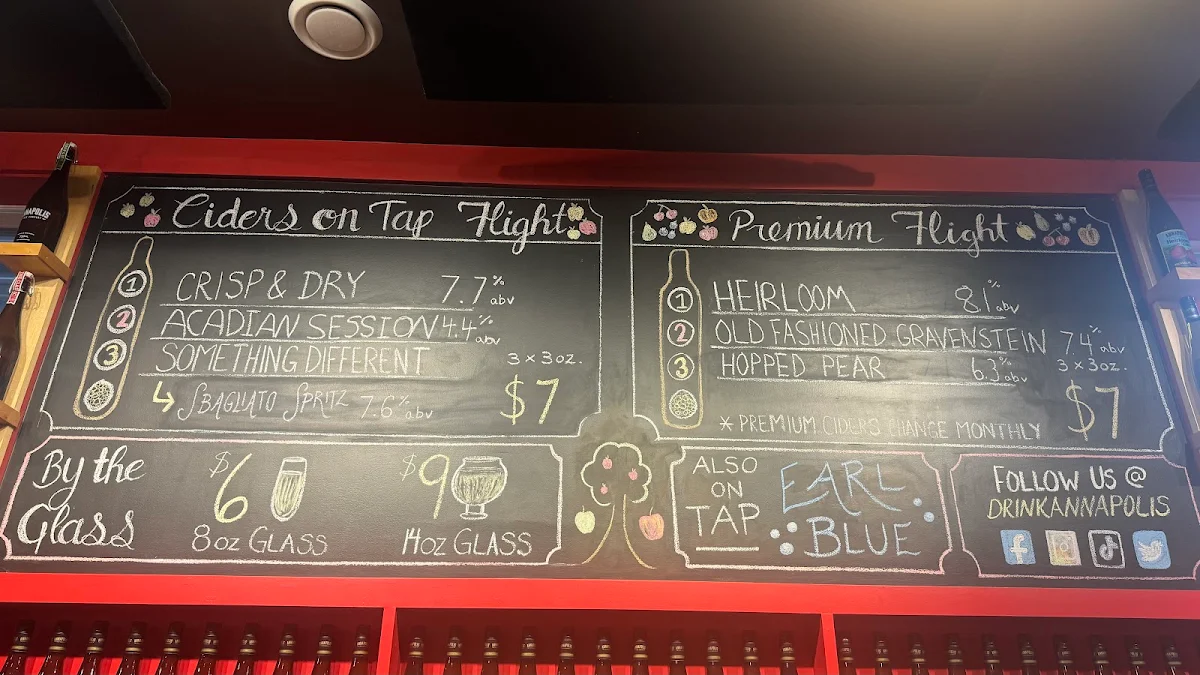 Ciders on Tap Flight
1 CRISP & DRY 7.7% abv
2 ACADIAN SESSION 4.4% abv
3 SOMETHING DIFFERENT
3 x 3oz.
SBAGLIATO SPRITZ 7.6% abv
$7
Premium Flight
1 HEIRLOOM 8.1% abv
2 OLD FASHIONED GRAVENSTEIN 7.4% abv
3 HOPPED PEAR 6.3% abv
3 x 3oz.
$7
* PREMIUM CIDERS CHANGE MONTHLY
By the
Glass
$6
8oz GLASS
$9
14oz GLASS
ALSO
ON
TAP
EARL
BLUE
FOLLOW US @
DRINKANNAPOLIS